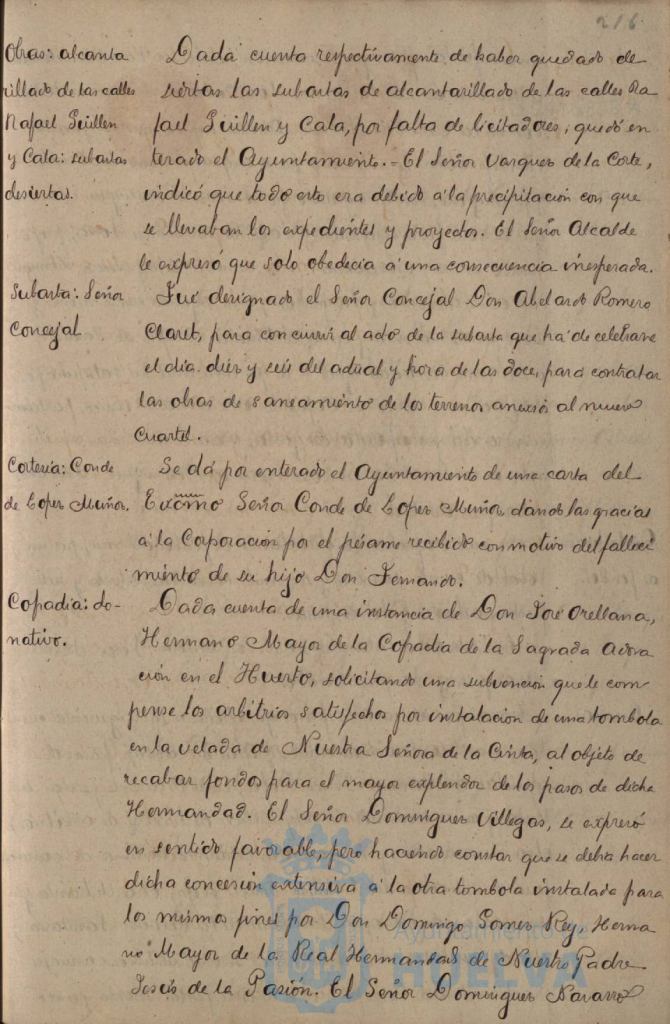 216
Obras: alcanta
rillado de las calles
Rafael Guillen
y Cala: subastas
desiertas.
Dada cuenta respectivamente de haber quedado de
siertas las subastas de alcantarillado de las calles Ra
fael Guillen y Cala, por falta de licitadores; quedó en
terado el Ayuntamiento.- El Señor Vazquez de la Corte,
indicó que todo esto era debido á la precipitación con que
se llevaban los expedientes y proyectos. El Señor Alcalde
le expresó que solo obedecia á una consecuencia inesperada.
Subasta: Señor
Concejal
Fué designado el Señor Concejal Don Abelardo Romero
Claret, para concurrir al acto de la subasta que há de celebrarse
el dia diez y seis del actual y hora de las doce, para contratar
las obras de saneamiento de los terrenos anexos al nuevo
Cuartel.
Cortesia: Conde
de Lopez Muñoz.
Se dá por enterado el Ayuntamiento de una carta del
Excmo Señor Conde de Lopez Muñoz, dando las gracias
á la Corporación por el pésame recibido con motivo del falleci
miento de su hijo Don Fernando.
Cofradia: do-
nativo.
Dada cuenta de una instancia de Don José Orellana,
Hermano Mayor de la Cofradia de la Sagrada Adora
ción en el Huerto, solicitando una subvención que le com
pense los arbitrios satisfechos por instalación de una tombola
en la velada de Nuestra Señora de la Cinta, al objeto de
recabar fondos para el mayor explendor de los pasos de dicha
Hermandad. El Señor Dominguez Villegas, se expresó
en sentido favorable, pero haciendo constar que se debia hacer
dicha concesión extensiva á la otra tombola instalada para
los mismos fines por Don Domingo Gomez Rey, Herma
no Mayor de la Real Hermandad de Nuestro Padre
Jesús de la Pasión. El Señor Dominguez Navarro
Ayuntamiento
HUELVA